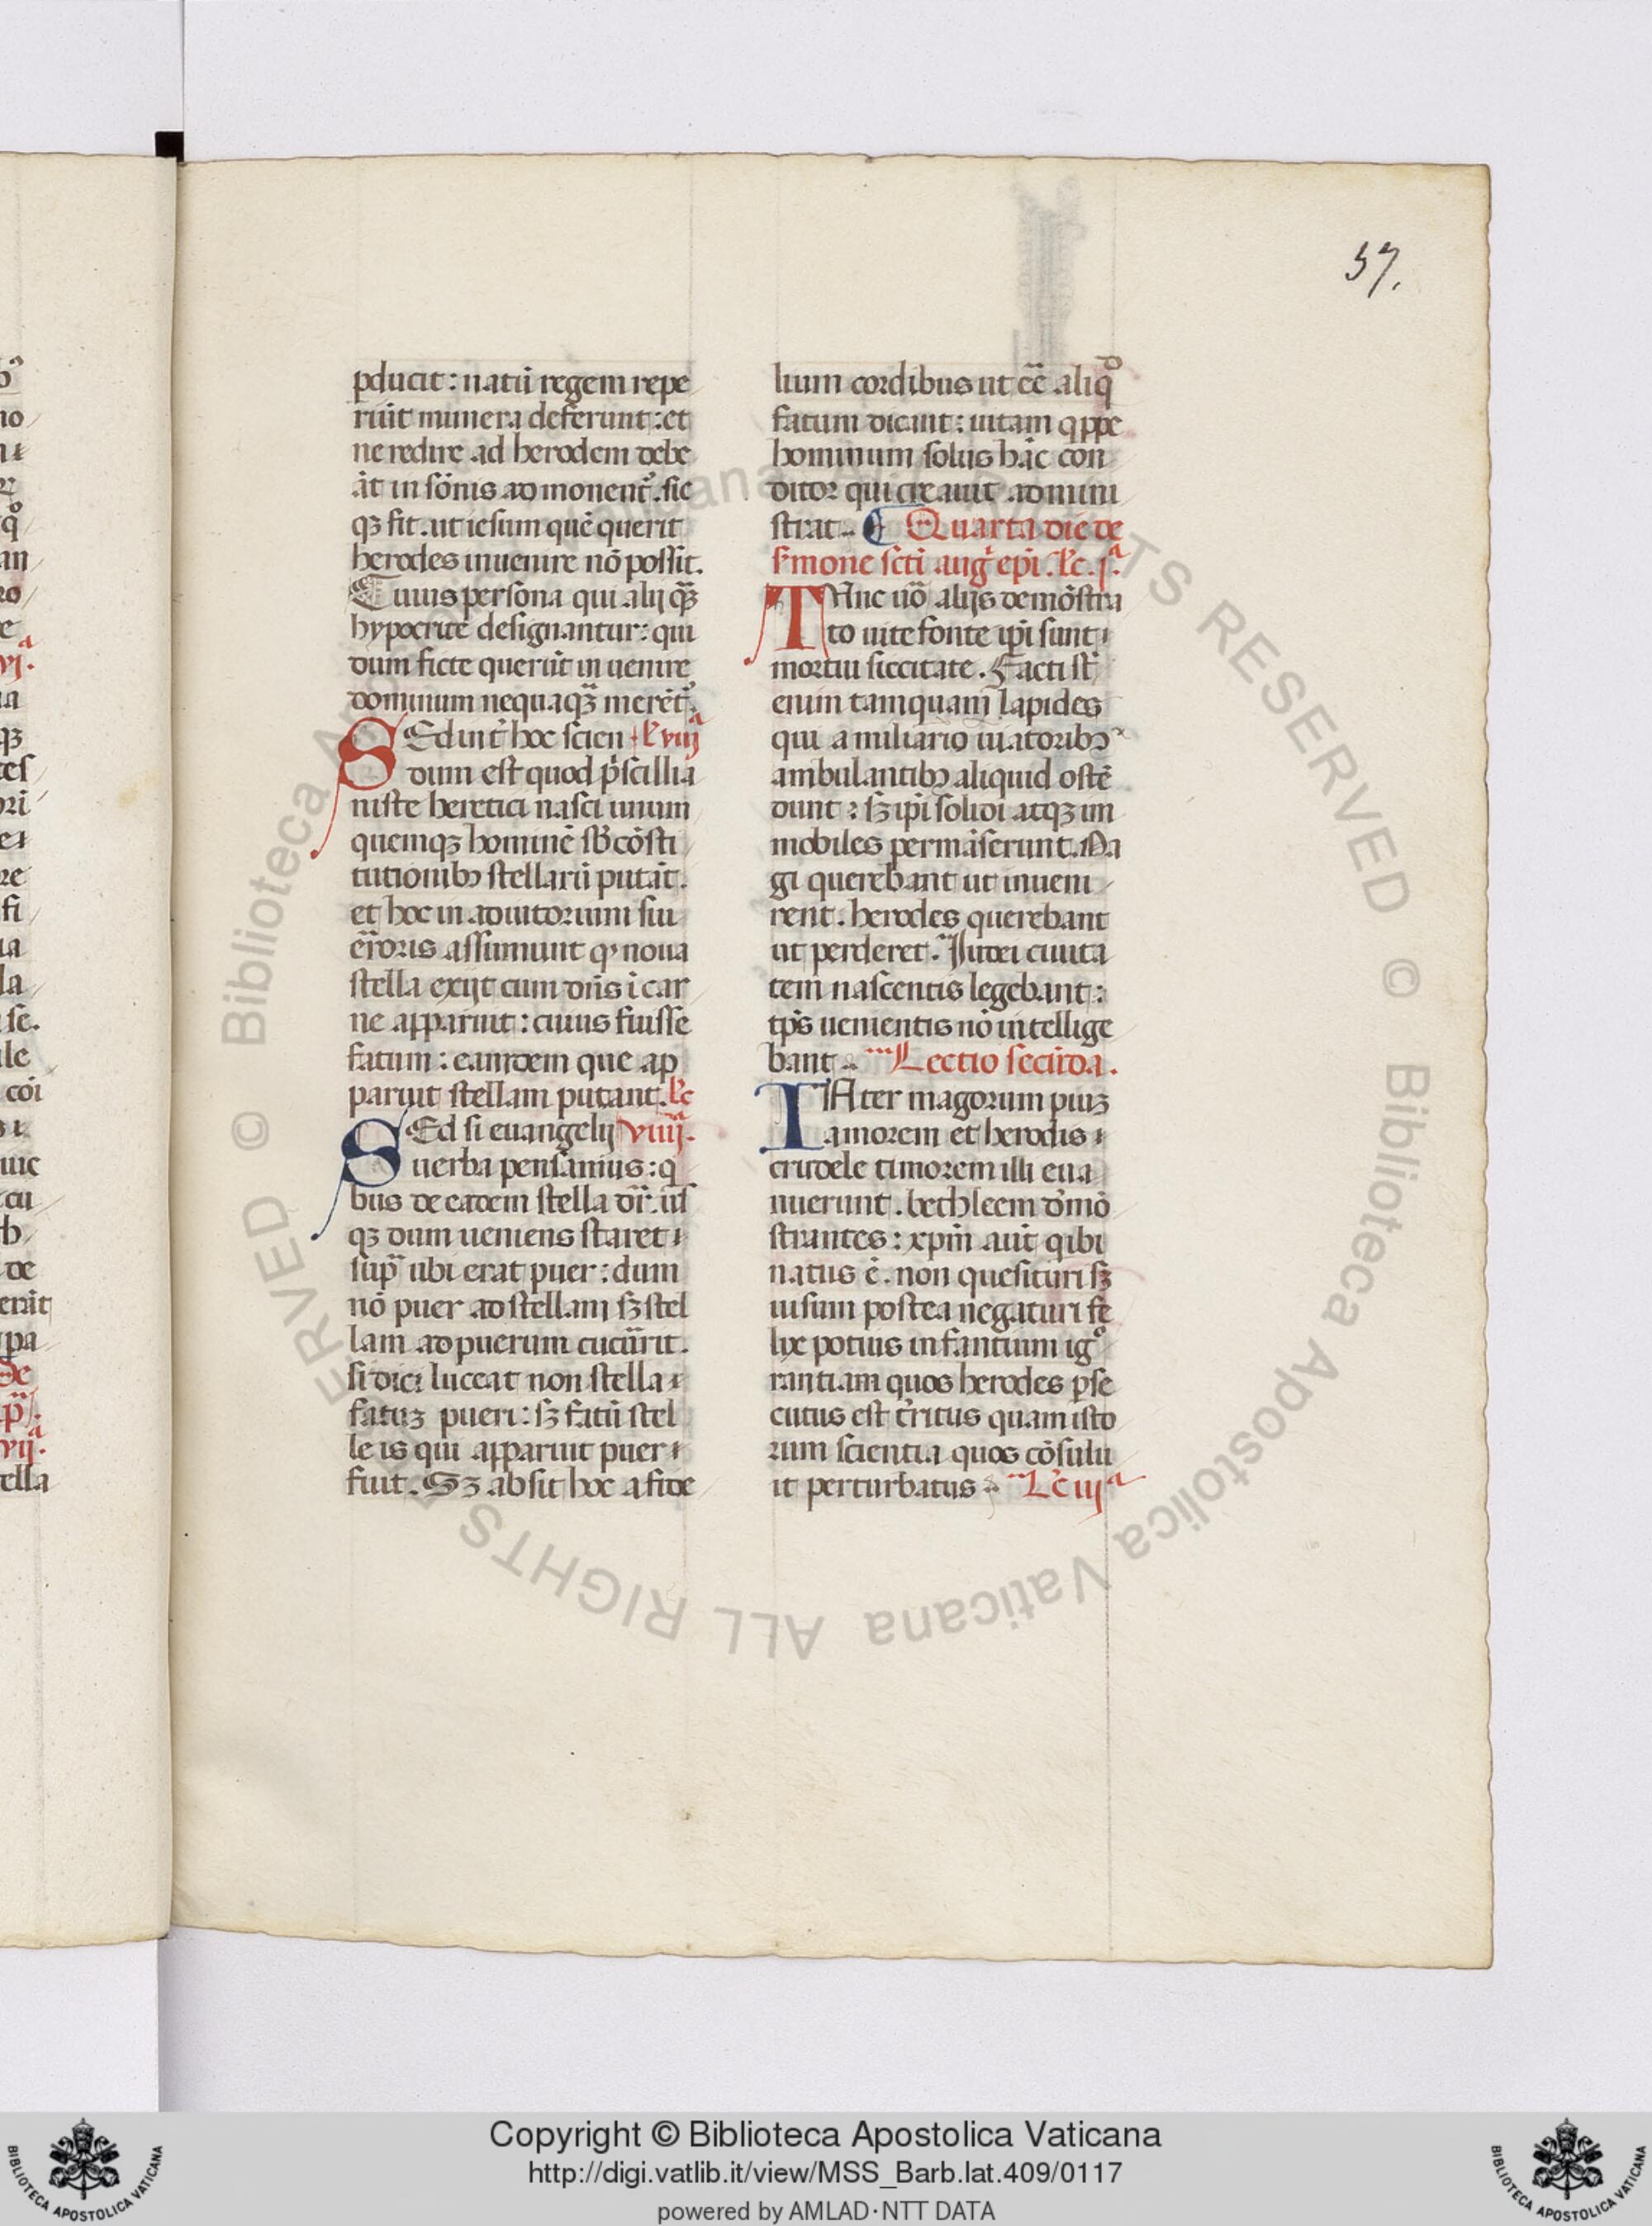 57.
pducit : natū regem repe
rūit munera deferunt : et
ne redire ad herodem debe
āt in sōnis admonent᷑. sic
qꝫ fit. ut iesum quē querit
herodes inuenire nō possit.
Cuius persona qui alij qͣꝫ
hypocrite designantur : qui
dum ficte querūt inuenire
dominum nequaqͣꝫ merēt᷑.
SEd int᷑ hoc scien l'c viijͣ
dum est quod p͛scillia
niste heretici nasci unum
quemqꝫ hominē sb̄ cōsti
tutionibꝰ stellarū putāt.
et hoc in adiutorium sui
erroris assumunt qꝰ noua
stella exijt cum dn̄s ī car
ne apparuit : cuius fuisse
fatum : eamdem que ap
paruit stellam putant. l'c
SEd si euangelij viiijͣ.
uerba pensamus : q͛
bus de eadem stella dr̄. us̄
qꝫ dum ueniens staret
supͣ ubi erat puer : dum
nō puer ad stellam sꝫ stel
lam ad puerum cucurrit.
si dici luceat non stella
fatuꝫ pueri : sꝫ fatū stel
le is qui apparuit puer
fuit. Sꝫ absit hoc a fide
lium cordibus ut eē̄ aliqͦ
fatum dicant : uitam q͛ppe
hominum solus hāc con
ditor qui creauit admini
strat. Quarta die de
s͛mone sc̄ti aug᷑ ep̄i. l'c. jͣ.
TUnc uō alijs demōstra
to uite fonte ip̄i sunt
mortui siccitate. Facti st̄
enim tamquam lapides
qui a miliario uiatoribꝰ
ambulantibꝰ aliquid ostē
dunt : sꝫ ip̄i solidi atqꝫ im
mobiles permāserunt. Ma
gi querebant ut inueni
rent. herodes querebant
ut perderet. Iudei ciuita
tem nascentis legebant :
tp̄s uenientis nō intellige
bant. Lectio secūda.
INter magorum piuꝫ
amorem et herodis
crudele timorem illi eua
nuerunt. bethleem d͛mō
strantes : xp̄m aūt q ibi
natus ē. non quesituri sꝫ
uisum postea negaturi fe
lix potius infantium igͦ
rantiam quos herodes ꝑse
cutus est t͛ritus quam isto
rum scientia quos cōsulu
it perturbatus. L'c iijͣ
Copyright © Biblioteca Apostolica Vaticana
http://digi.vatlib.it/view/MSS_Barb.lat.409/0117
powered by AMLAD·NTT DATA
BIBLIOTECA APOSTOLICA VATICANA
BIBLIOTECA APOSTOLICA VATICANA
© Biblioteca Apostolica Vaticana ALL RIGHTS RESERVED © Biblioteca Apostolica Vaticana ALL RIGHTS RESERVED